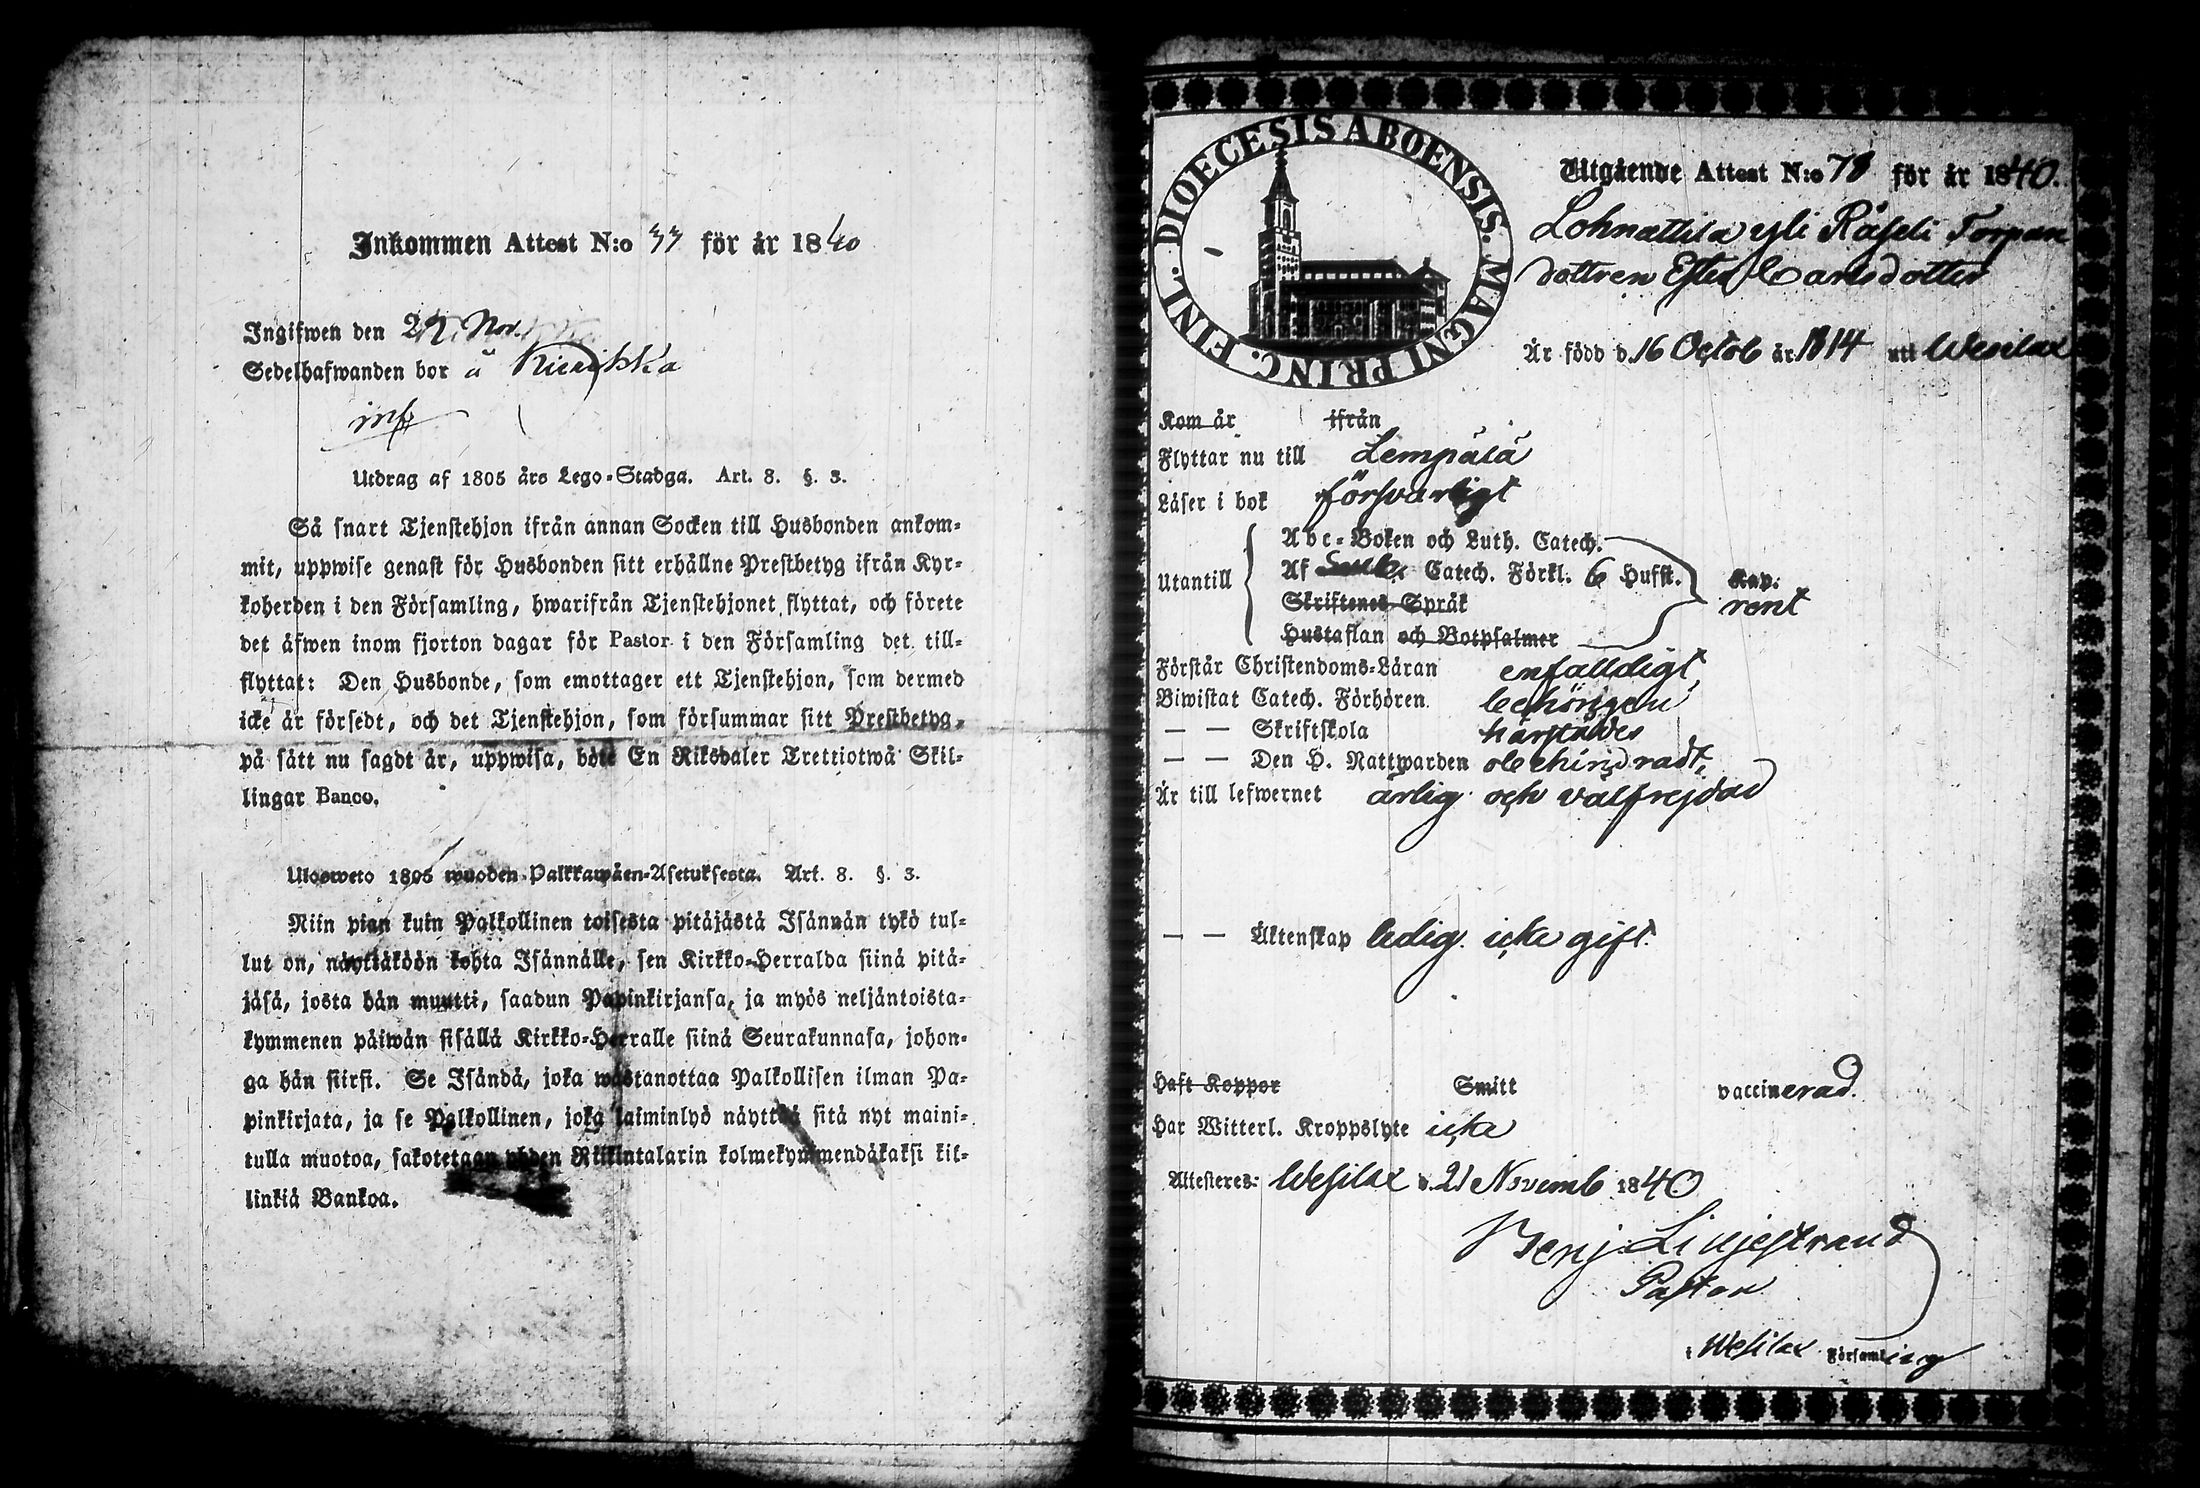 Inkommen Attest N:o 33 för år 1840
Ingifwen den 27 Nov.
Sedelhafwanden bor å
inh
Utdrag af 1805 års Lego-Stadga. Art. 8. §. 3.
Så snart Tjenstehjon ifrån annan Socken till Husbonden ankom-
mit, uppwise genast för Husbonden sitt erhållne Prestbetyg ifrån Kyr-
koherden i den Församling, hwarifrån Tjenstehjonet flyttat, och förete
det äfwen inom fjorton dagar för Pastor i den Församling det till-
flyttat: Den Husbonde, som emottager ett Tjenstehjon, som dermed
icke är försedt, och det Tjenstehjon, som försummar sitt Prestbetyg,
på sätt nu sagdt är, uppwisa, böte En Riksdaler Trettiotwå Skil-
lingar Banco.
Ulosweto 1805 wuoden Palkkawäen-Asetuksesta. Art. 8. §. 3.
Niin pian kuin Palkollinen toisesta pitäjästä Isännän tykö tul-
lut on, näyttäköön kohta Isännälle, sen Kirkko-Herralda siinä pitä-
jäsä, josta hän muutti, saadun Papinkirjansa, ja myös neljäntoista-
kymmenen päiwän sisällä Kirkko-Herralle siinä Seurakunnasa, johon-
ga hän siirsi. Se Isändä, joka wastanottaa Palkollisen ilman Pa-
pinkirjata, ja se Palkollinen, joka laiminlyö näyttää sitä nyt maini-
tulla muotoa, sakotetaan yhden Riikintalarin kolmekymmendäkaksi kil-
linkiä Bankoa.
DIOECESIS ABOENSIS. MAGNI PRINC. FINL.
Utgående Attest N:o 78 för år 1840.
Lohnattila yli Räfseli Torpare
dottren Ester Carlsdotter
Är född d. 16 Octob år 1814 uti Wesilax
Kom år ifrån
Flyttar nu till Lempälä
Läser i bok försvarligt
Utantill
Abc-Boken och Luth. Catech.
Af Catech. Förkl. 6 Hufst. Kap.
Skriftenes Språk rent
Hustaflan och Botpsalmer
Förstår Christendoms-Läran enfalldigt,
Biwistat Catech. Förhören behörigen
— — Skriftskola härstädes
— — Den H. Nattwarden obehindradt,
Är till lefwernet ärlig och välfrejdad
— — Äktenskap ledig icke gift.
Haft Koppor Smitt vaccinerad.
Har Witterl. Kroppslyte icke
Attesteres: Wesilax d. 21 Novemb 1840
Benj Liljestrand
Pastor
i Wesilax Församling